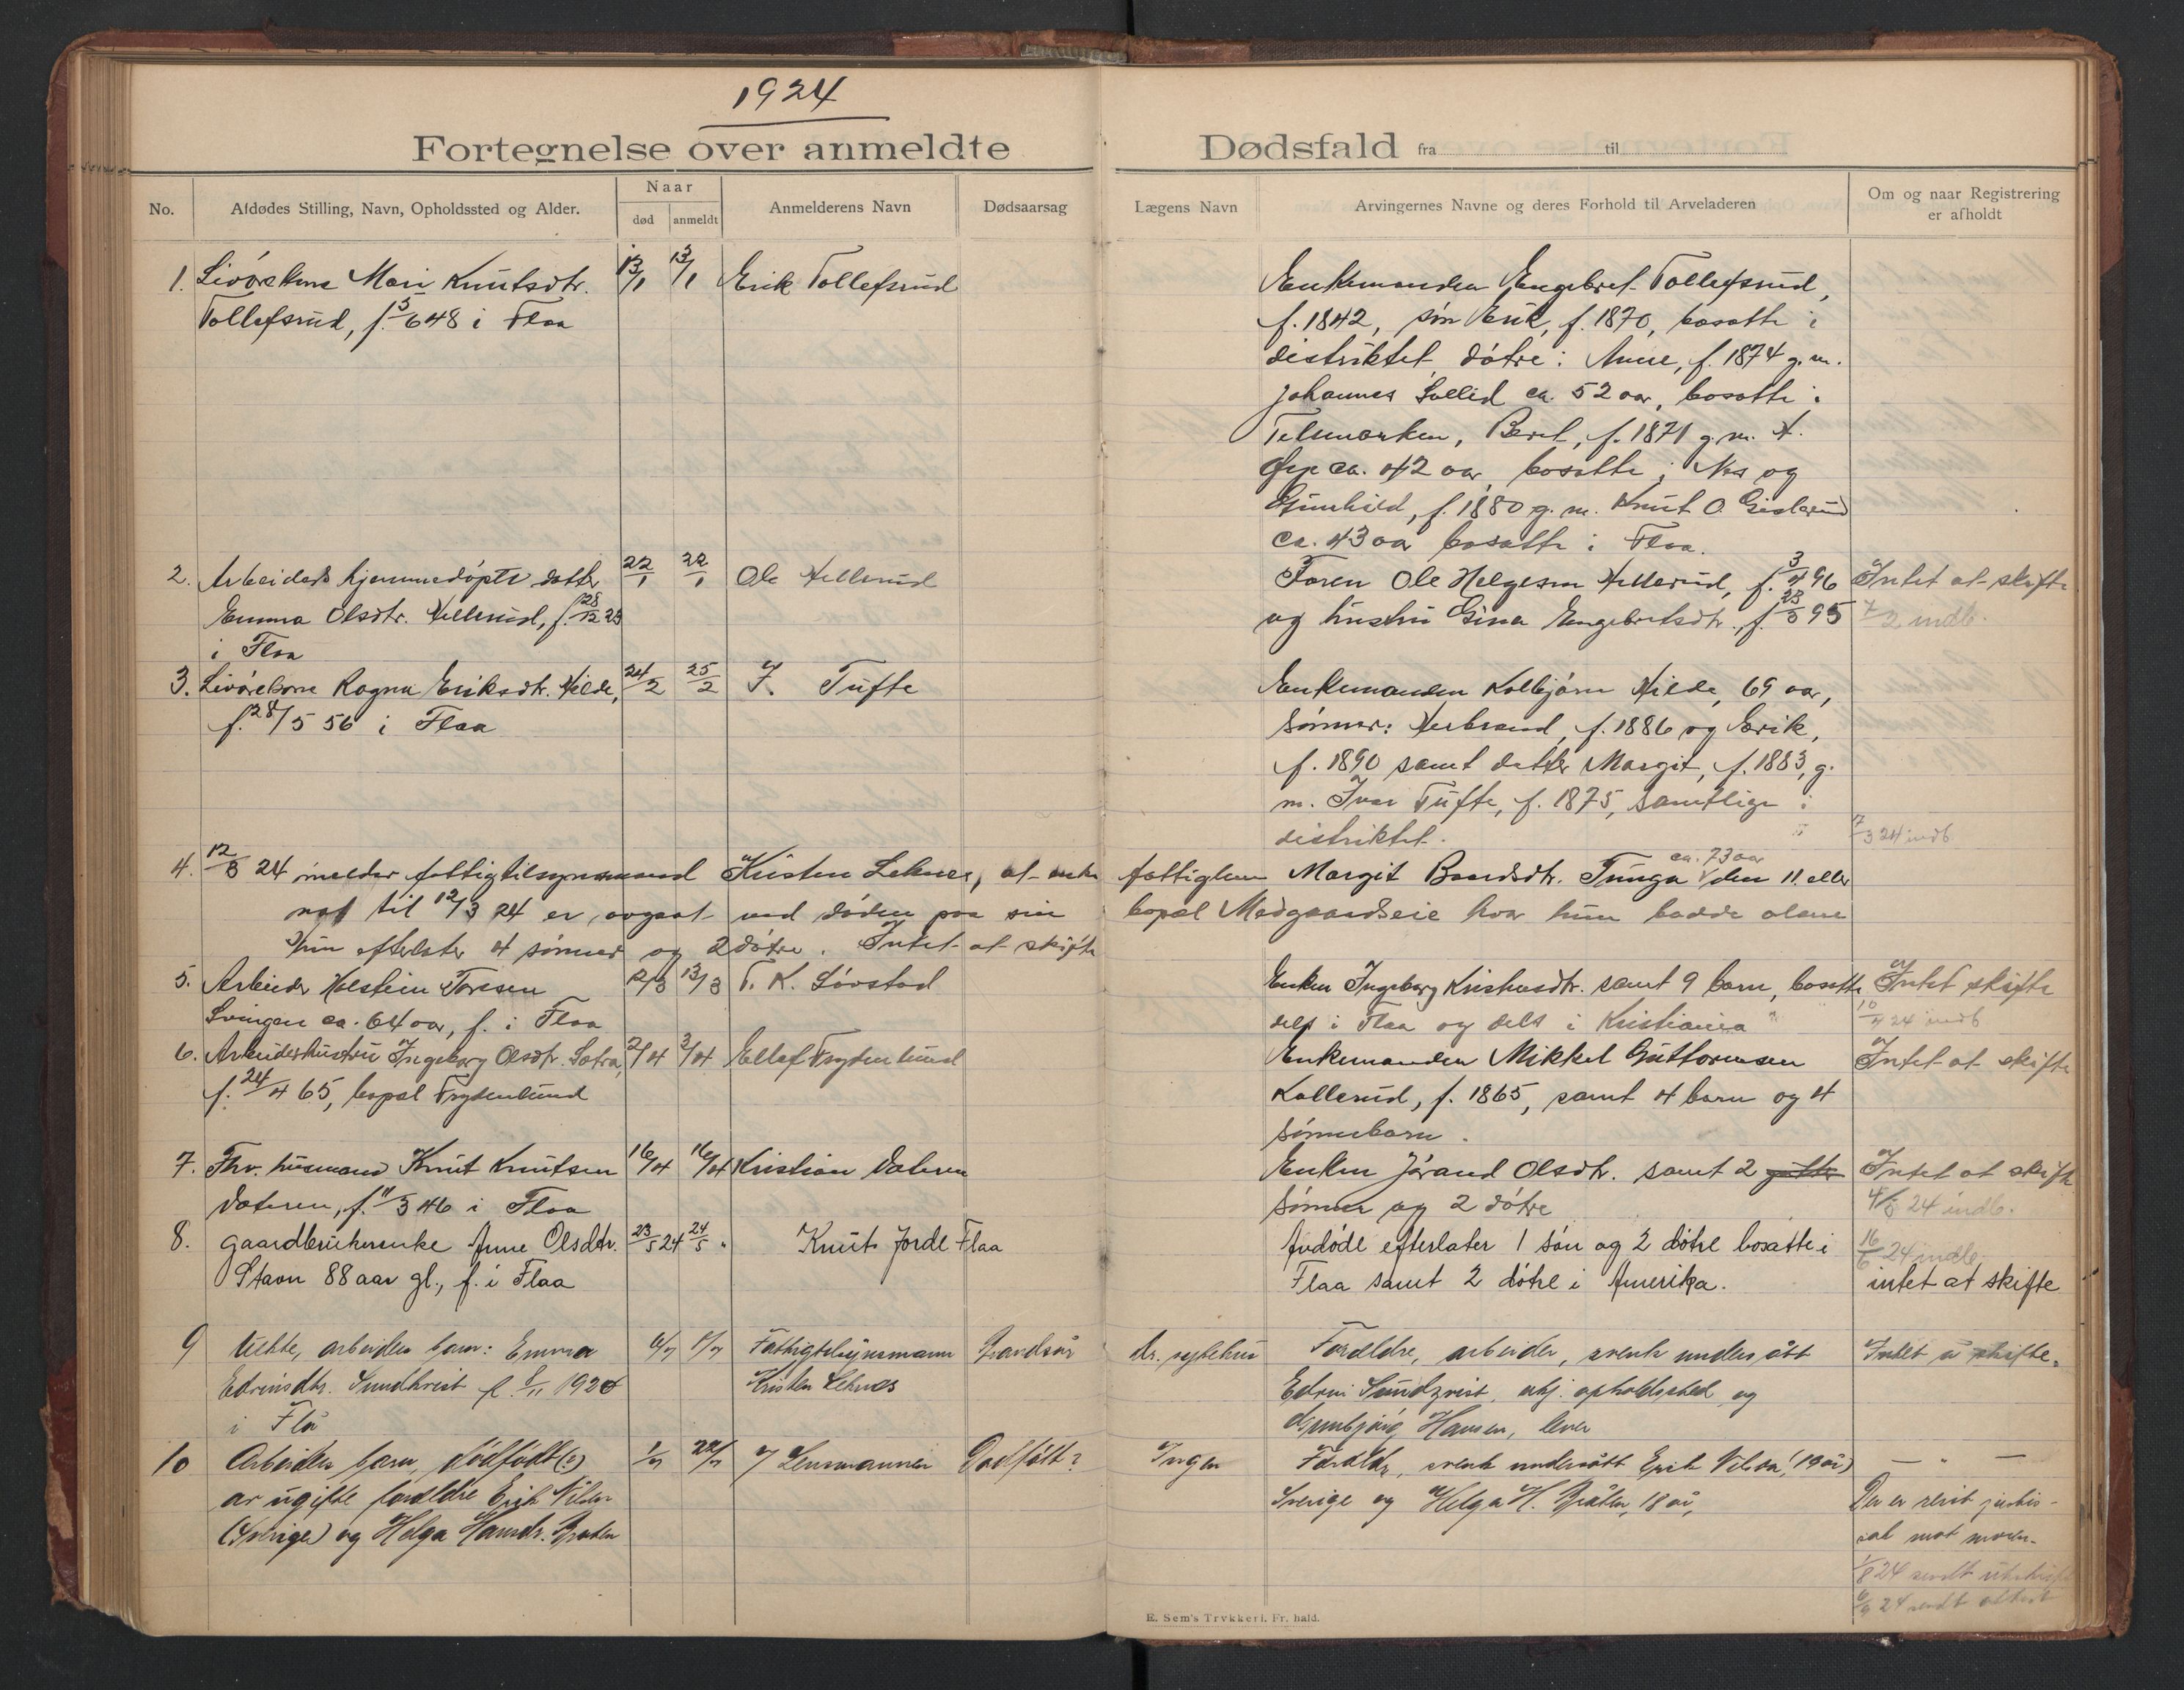 1924
Fortegnelse over anmeldte Dødsfald fra til
No.
Afdødes Stilling, Navn, Opholdssted og Alder.
Naar
død
anmeldt
Anmelderens Navn
Dødsaarsag
Lægens Navn
Arvingernes Navne og deres Forhold til Arveladeren
Om og naar Registrering
er afholdt
1. Livørekone Mari Knutsdtr. 13/1 13/1 Erik Tollefsrud
Tollefsrud, f. 5/6 48 i Flaa
Enkemanden Engebret Tollefsrud,
f. 1842, søn Erik, f. 1870, bosatte i
distriktet døtre: Anne, f. 1874 g. m.
Johannes Sollid ca. 52 aar, bosatte i
Telemarken, Beret, f. 1871 g. m. A.
ca. 42 aar bosatte i Nes og
Gunhild, f. 1880 g. m. Knut O. Gislerud
ca. 43 aar bosatte i Flaa.
2. Arbeiders hjemmedøpte datter 22/1 22/1 Ole Hellerud
Emma Olsdtr. Hellerud, f. 28/12 23
i Flaa
Faren Ole Helgesen Hellerud, f. 3/4 96 Intet at skifte
og hustru Gina Engebretsdtr., f. 23/3 95 7/2 indb.
3. Livørekone Ragna Eriksdtr. Hilde, 24/2 25/2 I. Tufte
f. 28/5 56 i Flaa
Enkemanden Kolbjørn Hilde, 69 aar,
sønner: Herbrand, f. 1886 og Erik,
f. 1890 samt datter Margit, f. 1883, g.
m. Ivar Tufte, f. 1875, samtlige i
distriktet. 7/3 24 indb.
4. 12/3 24 melder fattigtilsynsmand Kristen Leknes, at enke fattiglem Margit Baardsdtr. Tunga ca. 73 aar den 11. eller
nat til 12/3 24 er avgaat ved døden paa sin bopæl Medgaardseie hvor hun bodde alene
Hun efterlater 4 sønner og 2 døtre. Intet at skifte
5. Arbeider Holstein Toresen 12/3 13/3 T. K. Løvstad
Svingen ca. 64 aar, f. i Flaa
Enken Ingeborg Kristensdtr. samt 9 barn, bosatte Intet at skifte
dels i Flaa og dels i Kristiania 10/4 24 indb
6. Arbeiderhustru Ingeborg Olsdtr. Sætra, 2/4 3/4 Ellef Frydenlund
f. 24/4 65, bopæl Frydenlund
Enkemanden Mikkel Guttormsen Intet at skifte
Kollerud, f. 1865, samt 4 barn og 4
sønnebarn.
7. Fhv. husmand Knut Knutsen 16/4 16/4 Kristian Dateren
Dateren, f. 11/3 46 i Flaa
Enken Jørand Olsdtr. samt 2 gutter Intet at skifte
sønner og 2 døtre 4/5 24 indb.
8. Gaardbrukerenke Anne Olsdtr. 23/5 24 24/5 " Knut Jorde Flaa
Stavn 88 aar gl., f. i Flaa
Avdøde efterlater 1 søn og 2 døtre bosatte i 16/6 24 indb.
Flaa samt 2 døtre i Amerika. intet at skifte
9 Uekte, arbeiders barn: Emma Fattigtilsynsmann
Edvinsdtr. Sundkvist f. 8/11 1920 Kristen Leknes
i Flå
Dr. sykehus Foreldre, arbeider, svensk undersått Intet å skifte.
Edvin Sundqvist, ukj. opholdssted og
Gunbjørg Hansen, lever
10 Arbeiders barn, dødfødt (?) 22/7 Lensmannen Dødfødt?
av ugifte foreldre Erik Nilsen
(Sverige) og Helga Hansdtr. Bråten
Ingen Foreldre, svensk undersått Erik Nilsen, (19 år) — " —
Sverige og Helga H. Bråten, 18 år,
Der er reist justis-
sak mot moren.
1/8 24 sendt utskrift
6/9 24 sendt attest
E. Sem's Trykkeri, Fr. hald.